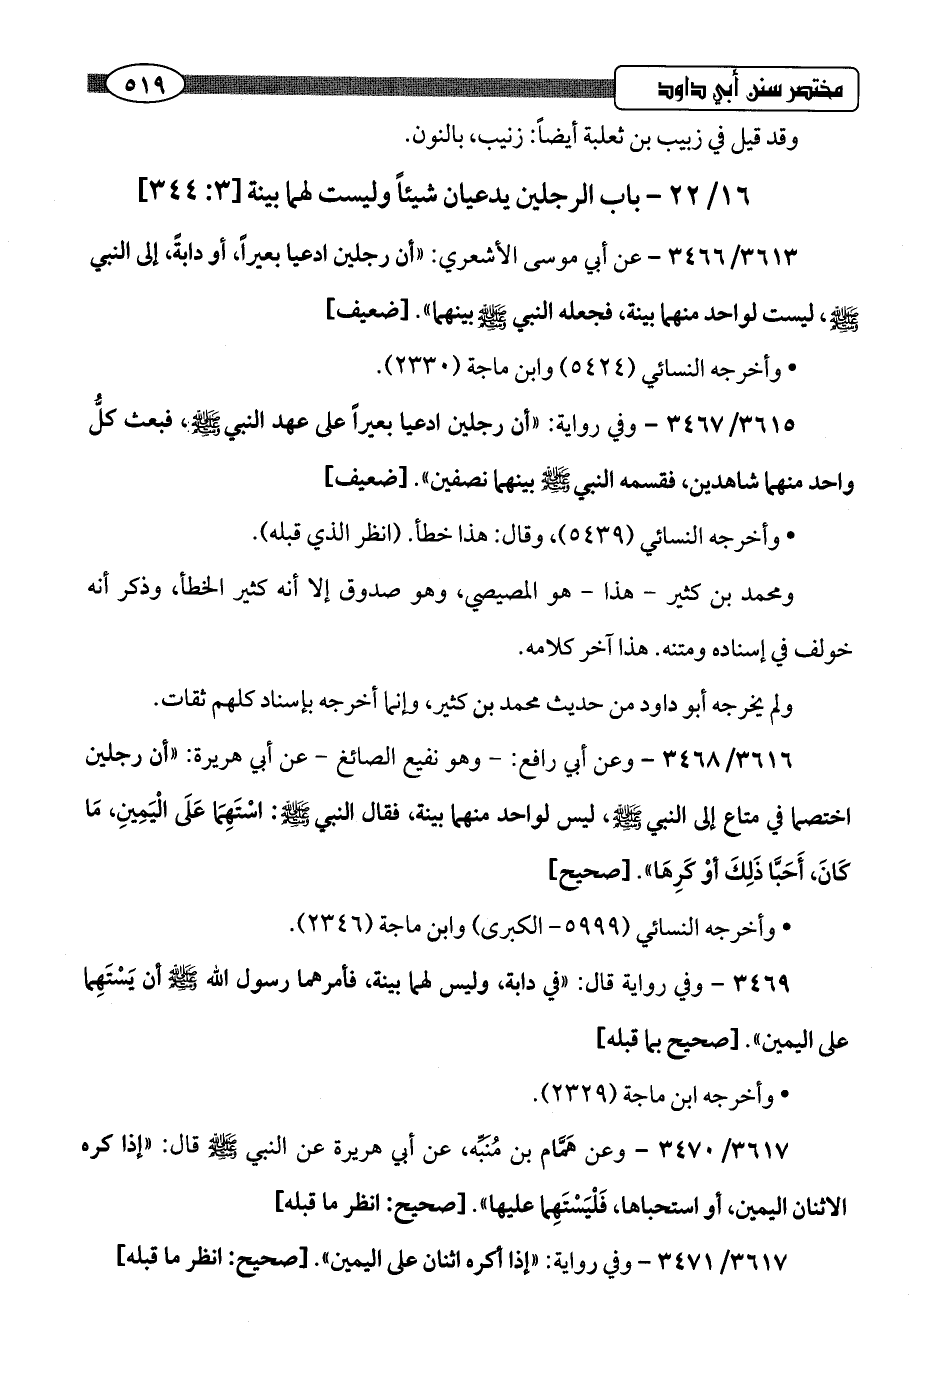 مختصر سنن أبي داود ٥١٩
وقد قيل في زبيب بن ثعلبة أيضاً: زنيب، بالنون.
١٦/ ٢٢ - باب الرجلين يدعيان شيئاً وليست لهما بينة [٣: ٣٤٤]
٣٤٦٦/٣٦١٣ - عن أبي موسى الأشعري: «أن رجلين ادعيا بعيراً، أو دابةً، إلى النبي
ﷺ، ليست لواحد منهما بينة، فجعله النبي ﷺ بينهما». [ضعيف]
• وأخرجه النسائي (٥٤٢٤) وابن ماجة (٢٣٣٠).
٣٤٦٧/٣٦١٥ - وفي رواية: «أن رجلين ادعيا بعيراً على عهد النبي ﷺ، فبعث كلُّ
واحد منهما شاهدين، فقسمه النبي ﷺ بينهما نصفين». [ضعيف]
• وأخرجه النسائي (٥٤٣٩)، وقال: هذا خطأ. (انظر الذي قبله).
ومحمد بن كثير - هذا - هو المصيصي، وهو صدوق إلا أنه كثير الخطأ، وذكر أنه
خولف في إسناده ومتنه. هذا آخر كلامه.
ولم يخرجه أبو داود من حديث محمد بن كثير، وإنما أخرجه بإسناد كلهم ثقات.
٣٤٦٨/٣٦١٦ - وعن أبي رافع: - وهو نفيع الصائغ - عن أبي هريرة: «أن رجلين
اختصما في متاع إلى النبي ﷺ، ليس لواحد منهما بينة، فقال النبي ﷺ: اسْتَهِمَا عَلَى الْيَمِينِ، مَا
كَانَ، أَحَبَّا ذَلِكَ أَوْ كَرِهَا». [صحيح]
• وأخرجه النسائي (٥٩٩٩- الكبرى) وابن ماجة (٢٣٤٦).
٣٤٦٩ - وفي رواية قال: «في دابة، وليس لهما بينة، فأمرهما رسول الله ﷺ أن يَسْتَهِما
على اليمين». [صحيح بما قبله]
• وأخرجه ابن ماجة (٢٣٢٩).
٣٤٧٠/٣٦١٧ - وعن هَمَّام بن مُنَبِّه، عن أبي هريرة عن النبي ﷺ قال: «إذا كره
الاثنان اليمين، أو استحباها، فَلْيَسْتَهِما عليها». [صحيح: انظر ما قبله]
٣٤٧١/٣٦١٧ - وفي رواية: «إذا أكره اثنان على اليمين». [صحيح: انظر ما قبله]